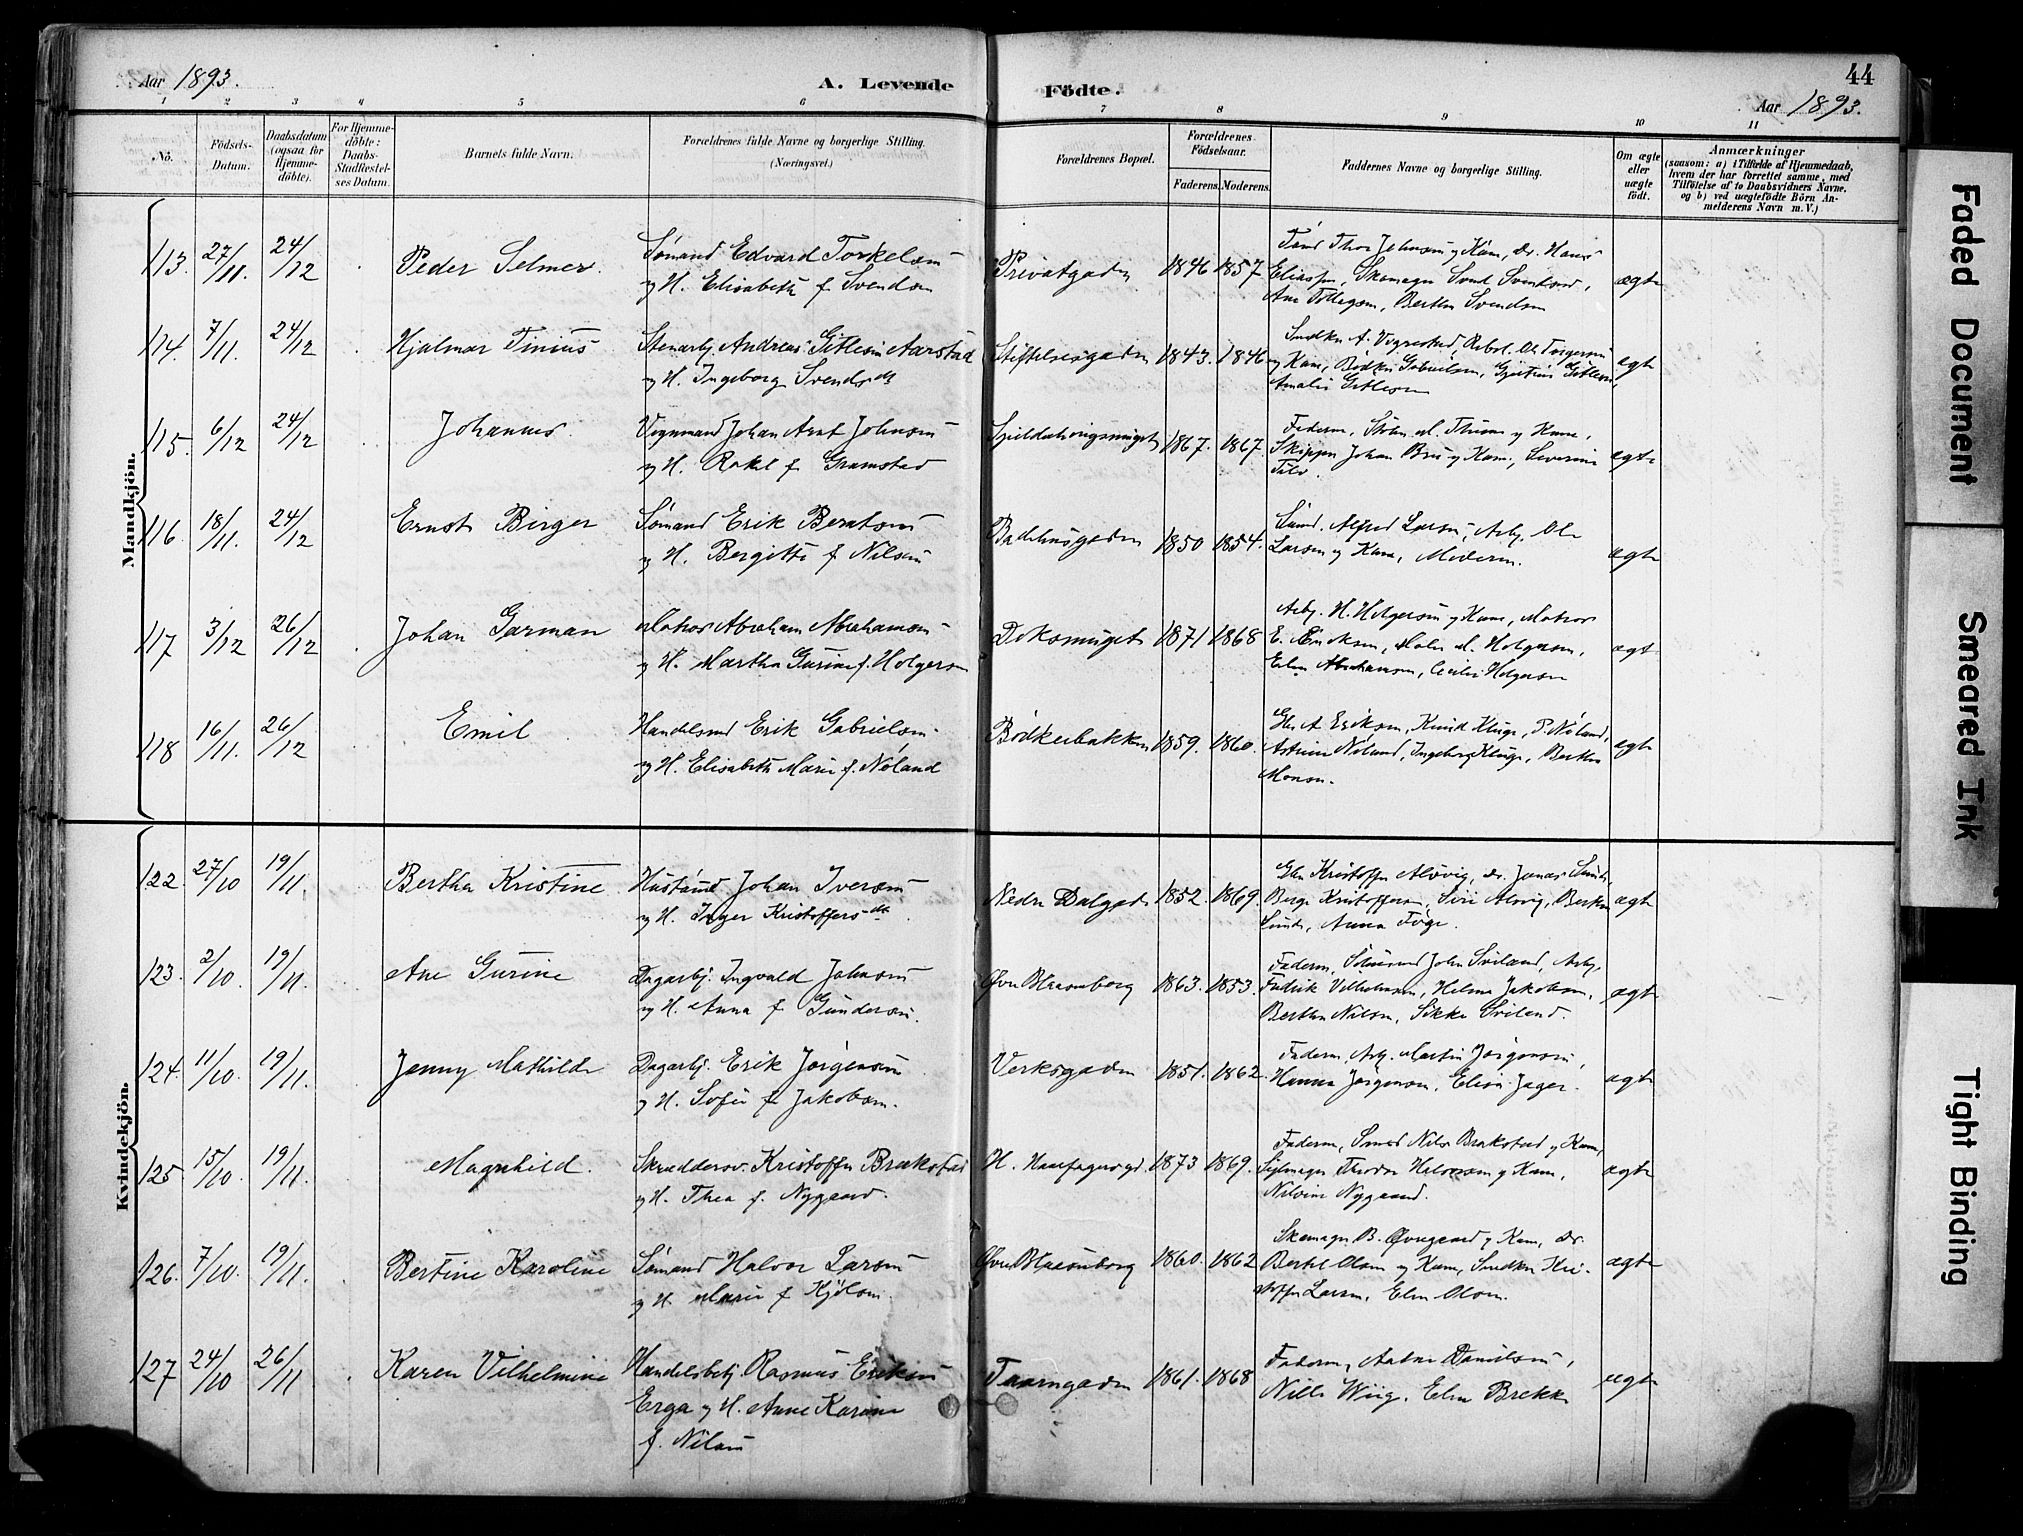 Aar 1893.
A. Levende
Födte.
44
Aar 1893.
1 2 3 4 5 6 7 8 9 10 11
No.
Födsels-
Datum.
Daabsdatum
(ogsaa for
Hjemme-
döbte).
For Hjemme-
döbte:
Daabs-
Stadfæstel-
ses Datum.
Barnets fulde Navn.
Forældrenes fulde Navne og borgerlige Stilling.
(Næringsvei.)
Forældrenes Bopæl.
Forældrenes
Födselsaar.
Faderens.
Moderens.
Faddernes Navne og borgerlige Stilling.
Om ægte
eller
uægte
födt.
Anmærkninger
(saasom: a) i Tilfælde af Hjemmedaab,
hvem der har forrettet samme, med
Tilföielse af to Daabsvidners Navne,
og b) ved uægtefödte Börn An-
melderens Navn m. V.)
Mandkjön.
113. 27/11. 24/12 Peder Selmer.
Sømand Edvard Torkelsen
og H. Elisabeth f Svendsen
Privatgaden 1846 1857
Thor Johnsen og Kone, Hans
Eliassen, Skomager Svend Svendsen,
Ane Tollegsen, Berthe Svendsen
ægte
114. 7/11. 24/12 Hjalmar Tinius
Stenarbj Andreas Gitlesen Aarstad
og H. Ingeborg Svendsdt
Stiftelsesgaden 1843. 1846
A. Vigrestad, Torgersen
og Kone, Bødker Gabrielsen, Gitlesen,
Amalie Gitlesen
ægte
115. 6/12 24/12 Johannes.
Vognmand Johan Arnt Johnsen
og H. Rakel f Gramstad
1867. 1867.
Faderen, og Kone,
Skipper Johan Bru og Kone, Severine
ægte
116. 18/11. 24/12 Ernst Birger
Sømand Erik Berntsen
og H. Bergitte f Nilsen
Badehusgaden 1850 1854.
Alfred Larsen, Arb. Ole
Larsen og Kone, Moderen.
ægte
117 3/12 26/12 Johan Garman
Matros Abraham Abrahamsen
og H. Martha Gurine f. Holgersen
Doksmuget 1871 1868
Arbj. H. Holgersen og Kone, Matros
E. Eriksen, Holgersen,
Elen Abrahamsen, Cecilie Holgersen
ægte
118 16/11. 26/12 Emil
Handelsmd Erik Gabrielsen
og H. Elisabeth Marie f. Nøland
Bødkerbakken 1859. 1860.
A Eriksen, Knud Kluge, P. Nøland,
Nøland, Ingeborg Kluge, Berthe
Monsen.
ægte
Kvindekjön.
122. 27/10 19/11. Bertha Kristine
Johan Iversen
og H. Inger Kristoffersdt
Nedre Dalgade 1852. 1869.
Kristoffer Alsvig, Jonas Sunde,
Berge Kristoffersen, Siri Alsvig, Berthe
Sunde, Anna
ægte
123. 2/10. 19/11 Ane Gurine
Dagarbj. Ingvald Johnsen
og H. Anna f Gundersen.
Øvre Blaasenborg 1863. 1853.
Faderen, John Sviland, Arbj.
Fredrik Vilhelmsen, Helene Jakobsen,
Berthe Nilsen, Sikke Sviland.
ægte
124. 11/10. 19/11. Jenny Mathilde
Dagarbj. Erik Jørgensen
og H. Sofie f Jakobsen.
Verksgaden 1851. 1862.
Faderen, Arb. Martin Jørgensen,
Hanna Jørgensen, Elise Jager.
ægte
125. 15/10. 19/11. Magnhild.
Skræddersv. Kristoffer Brækstad
og H. Thea f. Nygaard.
H. Haarfagersgd. 1873 1869.
Faderen, Smed Nils Brækstad og Kone,
Seilmager Theodor Halvorsen og Kone,
Nilsine Nygaard.
ægte
126. 7/10. 19/11. Bertine Karoline
Sømand Halvor Larsen
og H. Marie f Kjölsen.
Øvre Blaasenborg 1860. 1862
Skomager B. Øvregaard og Kone,
Bertel Olsen og Kone, Snedker Kri-
stoffer Larsen, Elen Olsen.
ægte
127 24/10 26/11 Karen Vilhelmine
Handelsbetj Rasmus Eriksen
Erga og H. Anne Karine
f. Nilsen
Taarngaden 1861. 1868
Faderen, Danielsen,
Nille Wiig, Elen Brekke
ægte
Faded Document
Smeared Ink
Tight Binding